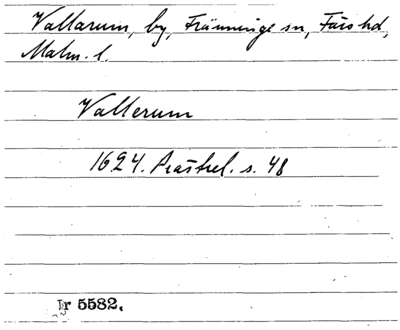 Vallarum, by, Fränninge sn, Färs hd,
Malm. l.
Vallerum
1624. Prästrel. s. 48
Nr 5582.